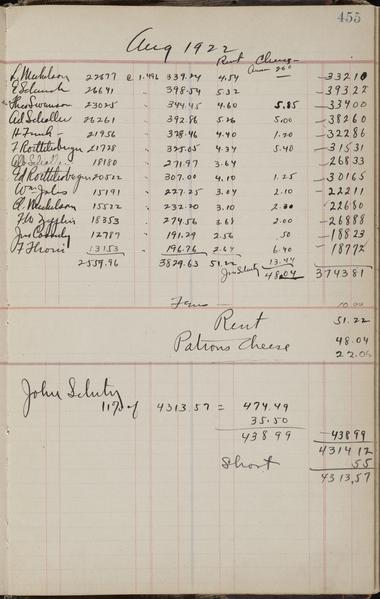 455
Aug 1922
Rent Cheese
26¢
L. Mickelson 22677 @ 1.496 339.24 4.54 - 33210
E Schunk 26641 " 398.54 5.32 - 39322
Theo Swanson 23025 " 344.45 4.60 5.85 - 33400
Ad Scheller 26261 " 392.86 5.26 5.00 - 38260
H Funk - 21956 " 328.46 4.40 1.20 - 32286
F Rotttiberger 21728 " 325.05 4.34 5.40 - 31531
18180 " 271.97 3.64 - 26833
Ed Rotttiberger 20522 " 307.00 4.10 1.25 - 30165
Wm Jahs 15191 " 227.25 3.04 2.10 - 22211
A. Mickelson 15522 " 232.20 3.10 2.30 - 22680
18353 " 274.56 3.68 2.00 - 26888
Jas Cassidy 12787 " 191.29 2.56 .50 - 18823
F Throni 13153 " 196.76 2.64 6.40 - 18772
2559.96 3829.63 51.22 13.44 374381
Jno Schuty
48.04
10.00
Rent 51.22
Patrons Cheese 48.04
22.06
John Schuty
11% of 4313.57 = 474.49
35.50
43899 - 43899
431412
Short 55
4313,57